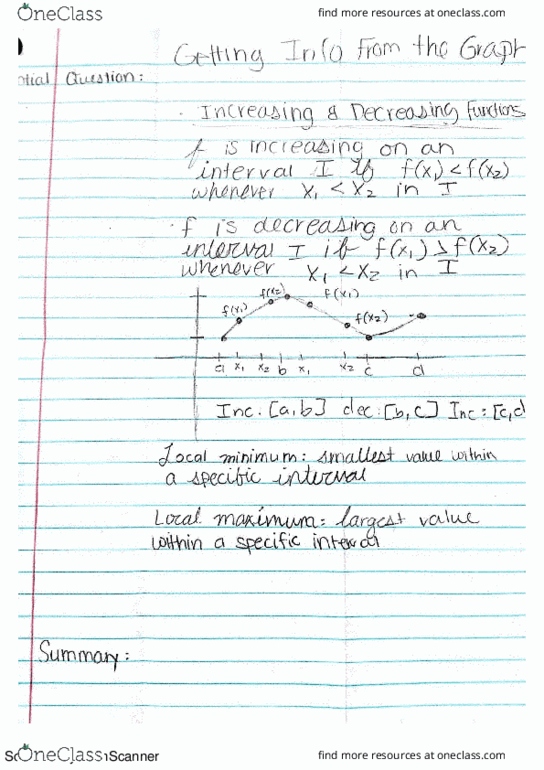 OneClass find more resources at oneclass.com
Getting Info From the Graph
ntial Question:
Increasing & Decreasing Functions
f is increasing on an
interval I if f(x₁) < f(x₂)
whenever x₁ < x₂ in I
f is decreasing on an
interval I if f(x₁) > f(x₂)
whenever x₁ < x₂ in I
f(x₁) f(x₂) f(x₁) f(x₂)
a x₁ x₂ b x₁ x₂ c d
Inc: [a,b] dec: [b,c] Inc: [c,d
Local minimum: smallest value within
a specific interval
Local maximum: largest value
within a specific interval
Summary:
OneClass Scanner find more resources at oneclass.com